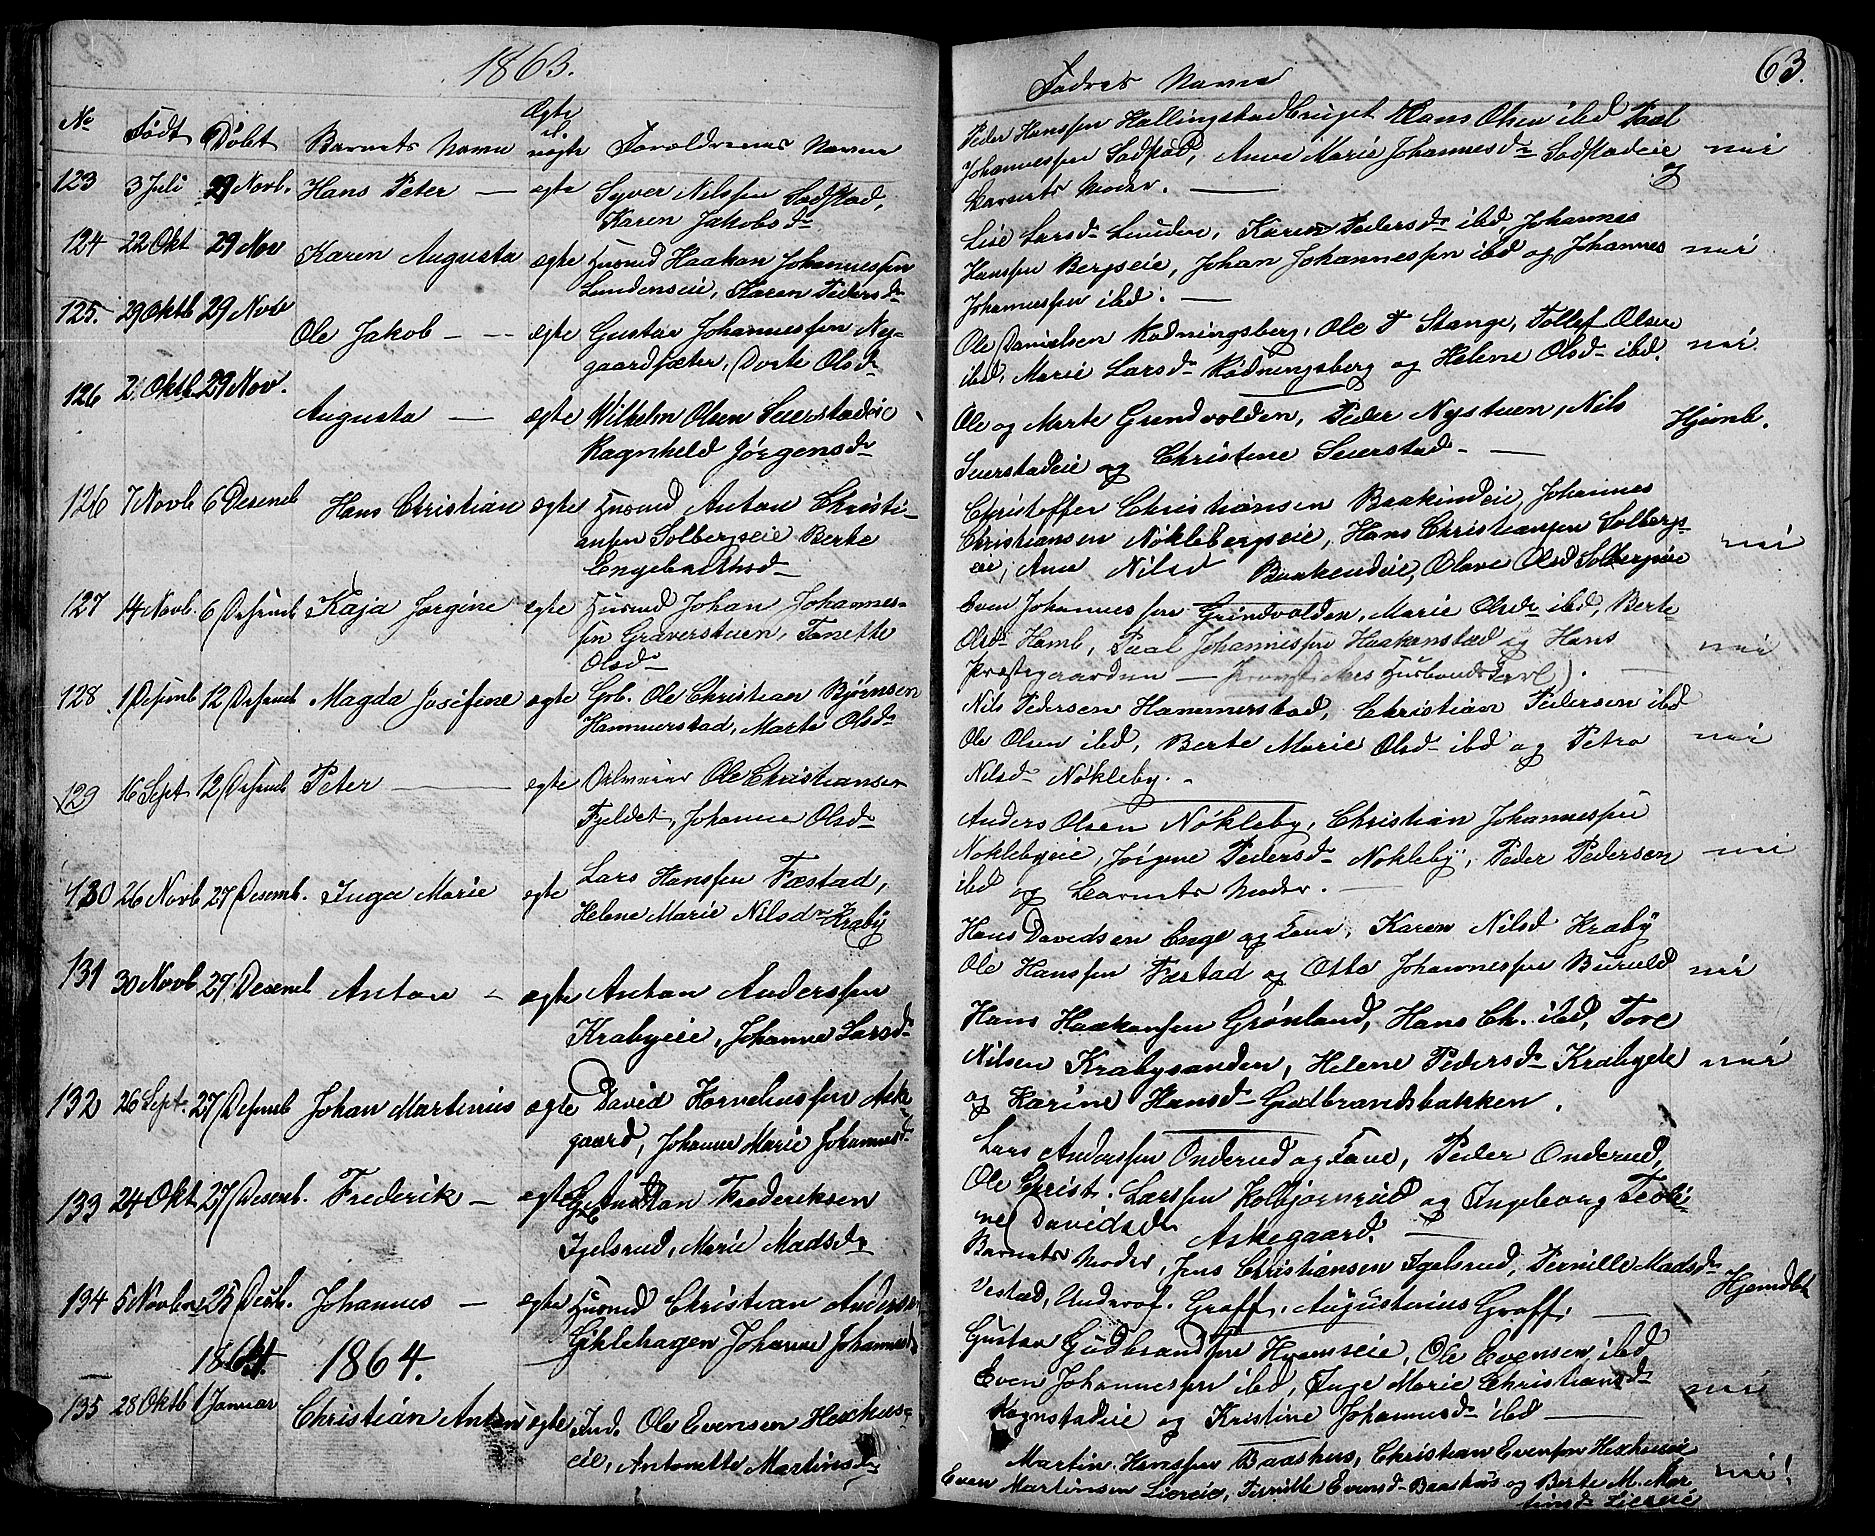 1863.
No
Født Døbt Barnets Navn Ægte el. uægte Forældrenes Navne
123 3 Juli 29 Novb. Hans Peter — egte Syver Nilssen Sodstad,
Karen Jakobsd
124 22 Okt 29 Nov Karen Augusta egte Husmd Haakan Johannessen
Lundenseie, Karen Pedersd
125. 29 Oktb 29 Nov Ole Jakob — egte Gustav Johannessen Ny-
gaardsæter, Dorte Olsd
126 2 Oktb 29 Nov. Augusta — egte Wilhelm Olsen Seierstadeie
Ragnheld Jørgensd
126 7 Novb 6 Desemb Hans Christian egte Husmd Anton Christi-
ansen Solbergseie Berte
Engebretsd
127 14 Novb. 6 Desemb Kaja Jorgine egte Husmd Johan Johannes-
sen Graverstuen, Tonette
Olsd
128 1 Desemb 12 Desemb Magda Josefine egte Grb. Ole Christian Bjørnsen
Hammerstad, Marte Olsd
129 16 Sept 12 Desemb Peter — egte Ole Christiansen
Fjeldet, Johanne Olsd
130 26 Novb 27 Desemb. Inga Marie egte Lars Hanssen Fæstad,
Helene Marie Nilsd Kraby
131 30 Novb 27 Desemb Anton — egte Anton Anderssen
Krabyeie, Johanne Larsd
132 26 Sept. 27 Desemb Johan Martinius egte David Korneliussen Aske
gaard, Johanne Marie Johannesd
133 24 Okt 27 Desemb. Frederik — egte Frederiksen
Igelsrud, Marie Madsd
134 5 Novbr 25 Desb. Johannes — egte Husmd Christian Anders
Giklehagen Johanne Johannesd
1864. 1864.
135 28 Oktb 1 Januar Christian Anton egte Ind. Ole Evensen Hexhus-
eie, Antonette Martinsd
63.
Fadres Navne
Peder Hanssen Hallingstadeniget Hans Olsen ibd Paal
Johannessen Sodstad, Anne Marie Johannesd Sodstadeie og
Barnets Moder. — nei
Lise Larsd Lunden, Karen Pedersd ibd, Johannes
Hanssen Bergseie, Johan Johannessen ibd og Johannes nei
Johannessen ibd. —
Ole Danielsen Kodningsberg, Ole P Stange, Tollef Olsen
ibd, Marie Larsd Kodningsberg og Helene Olsd ibd. nei.
Ole og Marte Grundvolden, Peder Nystuen, Nils Hjemb.
Seierstadeie og Christine Seierstad. —
Christoffer Christiansen Baakindeie, Johannes
Christiansen Nøklebergseie, Hans Christiansen Solbergs-
eie, Anne Nilsd Baakendeie, Olave Olsd Solbergseie nei
Even Johannessen Grindvolden, Marie Olsd ibd, Berte
Olsd Hamb, Paal Johannessen Haakenstad og Hans nei
Præstegaarden —
Nils Pedersen Hammerstad, Christian Pedersen ibd
Ole Olsen ibd, Berte Marie Olsd ibd og Petra nei
Nilsd Nøkleby. —
Anders Olsen Nøkleby, Christian Johannessen
Noklebyeie, Jørgine Pedersd Nokleby, Peder Pedersen nei
ibd og Barnets Moder. —
Hans Davidsen Enge og Kone, Karen Nilsd Kraby
Ole Hanssen Fæstad og Otto Johannessen Buruld nei
Hans Haakensen Grønland, Hans Ch. ibd, Tove
Nilsen Krabysanden, Helene Pedersd Krabyeie nei
og Karine Hansd Gudbrandsbakken.
Lars Anderssen Onderud og Kone, Peder Onderud,
Ole Christ. Larssen Kolbjørnrud og Ingeborg Teoli-
ne Davidsd Askegaard. —
Barnets Moder, Jens Christiansen Igelsrud, Pernille Madsd Hjemdbt
Vestad, Underof. Graff, Augustinius Graff. —
Gustav Gudbrandsen Hvemseie, Ole Evensen ibd
Even Johannessen ibd, Inge Marie Christiansd nei
Rognstadeie og Kristine Johannesd ibd —
Martin Hanssen Baashus, Christian Evensen Hexhuseie
Even Martinsen Liereie, Pernille Evensd Baashus og Berte M. Mar- nei!
tinsd Liereie